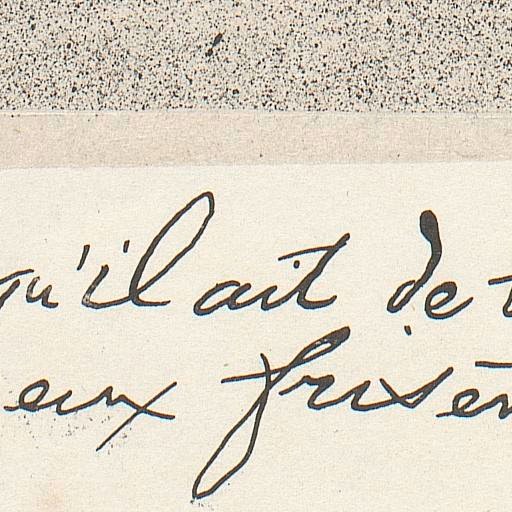 qu'il ait de
eux frisé